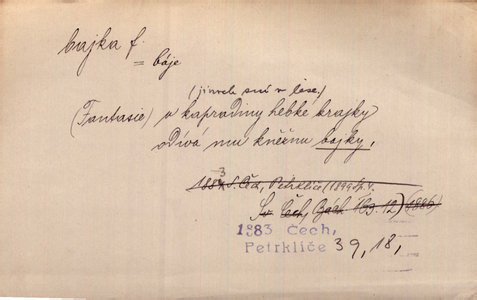 bajka f.
= báje
(jinoch sní v lese.)
(Fantasie) v kapradiny hebké krajky
odívá mu kněžnu bajky,
1883 S. Čech, Petrklíče (1899 Sp. V.
Sv Čech, 12) (1886)
1883 Čech,
Petrklíče 39, 18,